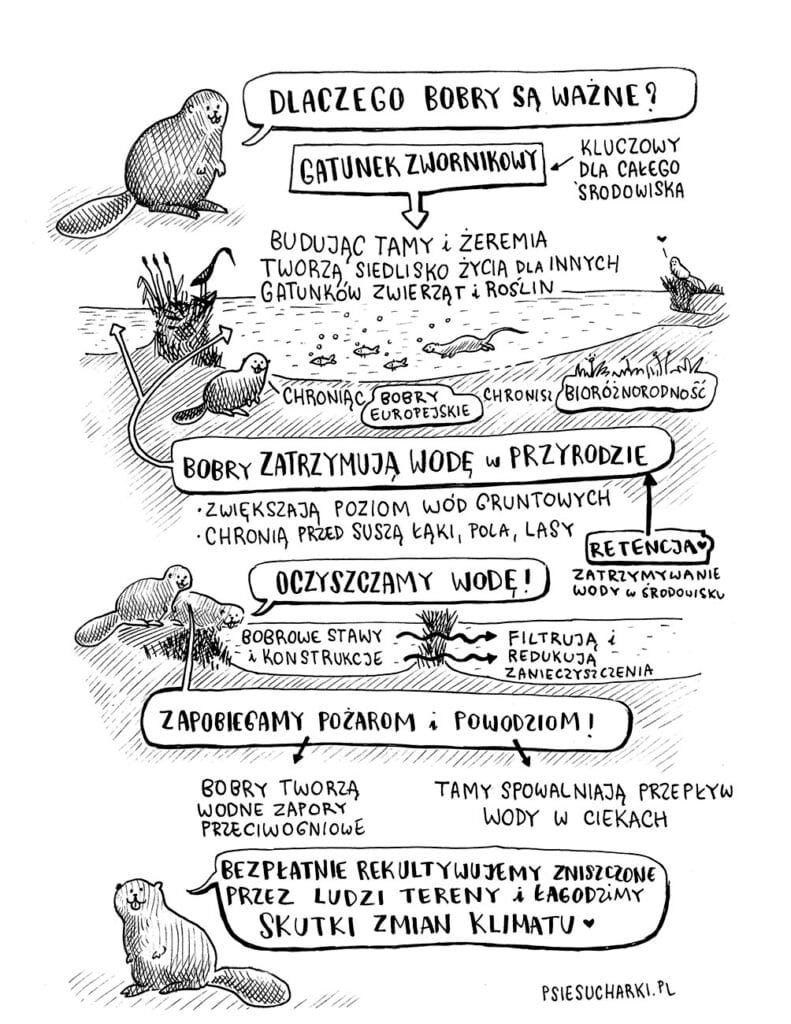 DLACZEGO BOBRY SĄ WAŻNE?
GATUNEK ZWORNIKOWY
KLUCZOWY
DLA CAŁEGO
ŚRODOWISKA
BUDUJĄC TAMY i ŻEREMIA
TWORZĄ SIEDLISKO ŻYCIA DLA INNYCH
GATUNKÓW ZWIERZĄT i ROŚLIN
CHRONIĄC BOBRY EUROPEJSKIE CHRONISZ BIORÓŻNORODNOŚĆ
BOBRY ZATRZYMUJĄ WODĘ W PRZYRODZIE
·ZWIĘKSZAJĄ POZIOM WÓD GRUNTOWYCH
·CHRONIĄ PRZED SUSZĄ ŁĄKI, POLA, LASY
RETENCJA♥
ZATRZYMYWANIE
WODY W ŚRODOWISKU
OCZYSZCZAMY WODĘ!
BOBROWE STAWY
i KONSTRUKCJE
FILTRUJĄ i
REDUKUJĄ
ZANIECZYSZCZENIA
ZAPOBIEGAMY POŻAROM i POWODZIOM!
BOBRY TWORZĄ
WODNE ZAPORY
PRZECIWOGNIOWE
TAMY SPOWALNIAJĄ PRZEPŁYW
WODY W CIEKACH
BEZPŁATNIE REKULTYWUJEMY ZNISZCZONE
PRZEZ LUDZI TERENY i ŁAGODZIMY
SKUTKI ZMIAN KLIMATU ♥
PSIESUCHARKI.PL